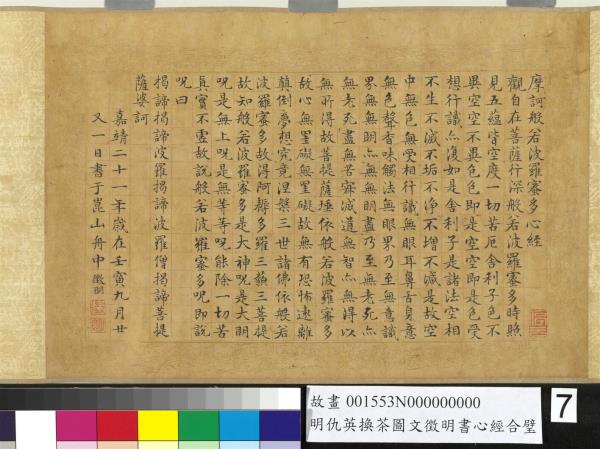 摩訶般若波羅蜜多心經
觀自在菩薩行深般若波羅蜜多時照
見五蘊皆空度一切苦厄舍利子色不
異空空不異色色即是空空即是色受
想行識亦復如是舍利子是諸法空相
不生不滅不垢不淨不增不減是故空
中無色無受相行識無眼耳鼻舌身意
無色聲香味觸法無眼界乃至無意識
界無無明亦無無明盡乃至無老死亦
無老死盡無苦寂滅道無智亦無得以
無所得故菩提薩埵依般若波羅蜜多
故心無罣礙無罣礙故無有恐怖遠離
顛倒夢想究竟涅槃三世諸佛依般若
波羅蜜多故得阿耨多羅三藐三菩提
故知般若波羅蜜多是大神呪是大明
呪是無上呪是無等等呪能除一切苦
真實不虛故說般若波羅蜜多呪即說
呪曰
揭諦揭諦波羅揭諦波羅僧揭諦菩提
薩婆訶
嘉靖二十一年歲在壬寅九月廿
又一日書于崑山舟中 徵明
故畫 001553N000000000
明仇英換茶圖文徵明書心經合璧
7